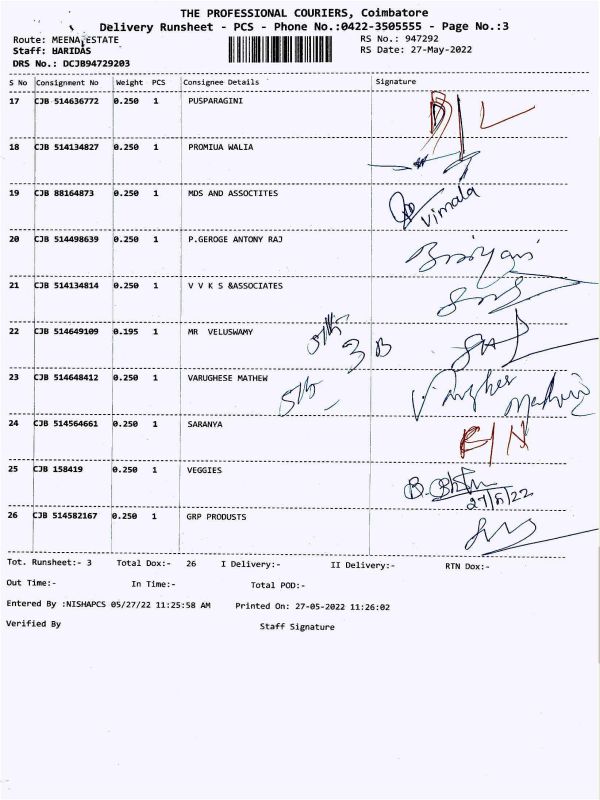 THE PROFESSIONAL COURIERS, Coimbatore
Delivery Runsheet - PCS - Phone No.:0422-3505555 - Page No.:3
Route: MEENA ESTATE RS No.: 947292
Staff: HARIDAS RS Date: 27-May-2022
DRS No.: DCJB94729203
S No Consignment No Weight PCS Consignee Details Signature
17 CJB 514636772 0.250 1 PUSPARAGINI
18 CJB 514134827 0.250 1 PROMIUA WALIA
19 CJB 88164873 0.250 1 MDS AND ASSOCTITES Vimala
20 CJB 514498639 0.250 1 P.GEROGE ANTONY RAJ
21 CJB 514134814 0.250 1 V V K S &ASSOCIATES
22 CJB 514649109 0.195 1 MR VELUSWAMY 3 B
23 CJB 514648412 0.250 1 VARUGHESE MATHEW
24 CJB 514564661 0.250 1 SARANYA
25 CJB 158419 0.250 1 VEGGIES
27/5/22
26 CJB 514582167 0.250 1 GRP PRODUSTS
Tot. Runsheet:- 3 Total Dox:- 26 I Delivery:- II Delivery:- RTN Dox:-
Out Time:- In Time:- Total POD:-
Entered By :NISHAPCS 05/27/22 11:25:58 AM Printed On: 27-05-2022 11:26:02
Verified By Staff Signature